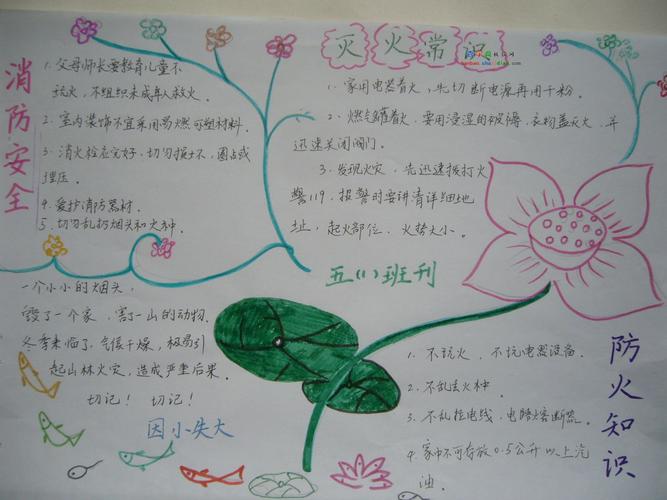 消防安全
1. 父母师长要教育儿童不
玩火，不组织未成年人救火。
2. 室内装饰不宜采用易燃可塑材料
3. 消火栓应完好，切勿损坏、圈占或
埋压。
4. 爱护消防器材
5. 切勿乱扔烟头和火种
灭火常识
1. 家用电器着火，先切断电源再用干粉。
2. 燃气罐着火，要用浸湿的被褥、衣物盖灭火，并
迅速关闭阀门。
3. 发现火灾，先迅速拨打火
警119，报警时要讲清详细地
址，起火部位、火势大小。
五(1)班刊
一个小小的烟头，
毁了一个家，害了一山的动物。
冬季来临了，气候干燥，极易引
起山林火灾，造成严重后果。
切记！ 切记！
因小失大
防火知识
1. 不玩火、不玩电器设备。
2. 不乱丢火种。
3. 不乱拉电线，电路熔断器。
4. 家中不可存放0.5公升以上汽
油。